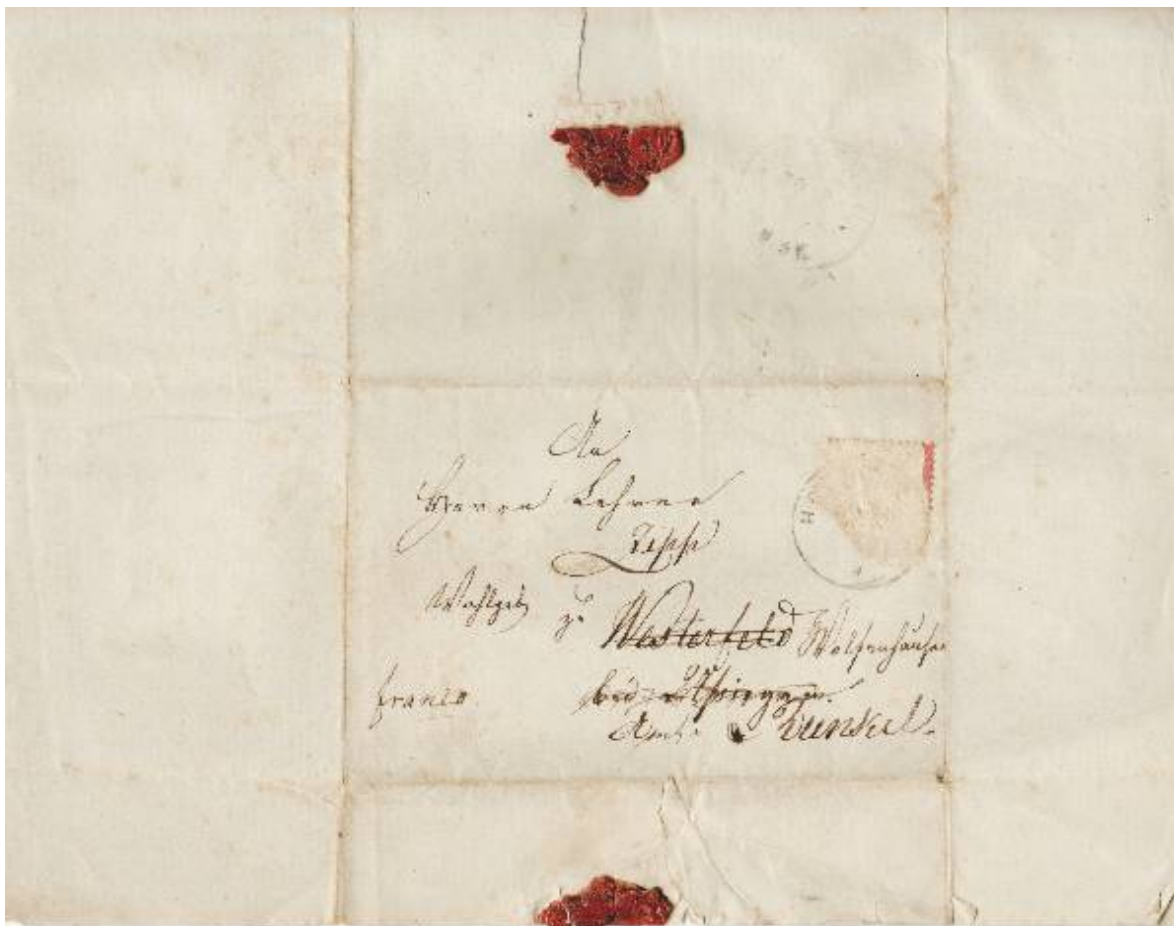 An
Herrn Lehrer
Zipp
Wohlgeb zu Westerfeld Wolfenhausen
franco bei Usingen
Amt Runkel.